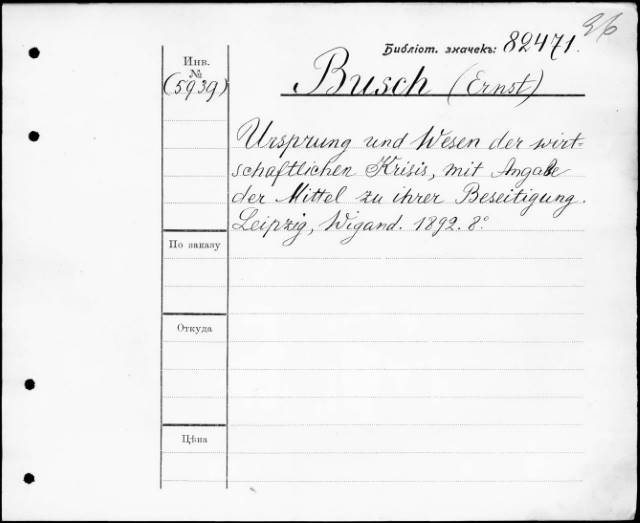 36
Библіот. значекъ: 82471.
Инв.
№
(5939)
Busch (Ernst)
Ursprung und Wesen der wirt=
schaftlichen Krisis, mit Angabe
der Mittel zu ihrer Beseitigung.
Leipzig, Wigand. 1892. 8°.
По заказу
Откуда
Цѣна